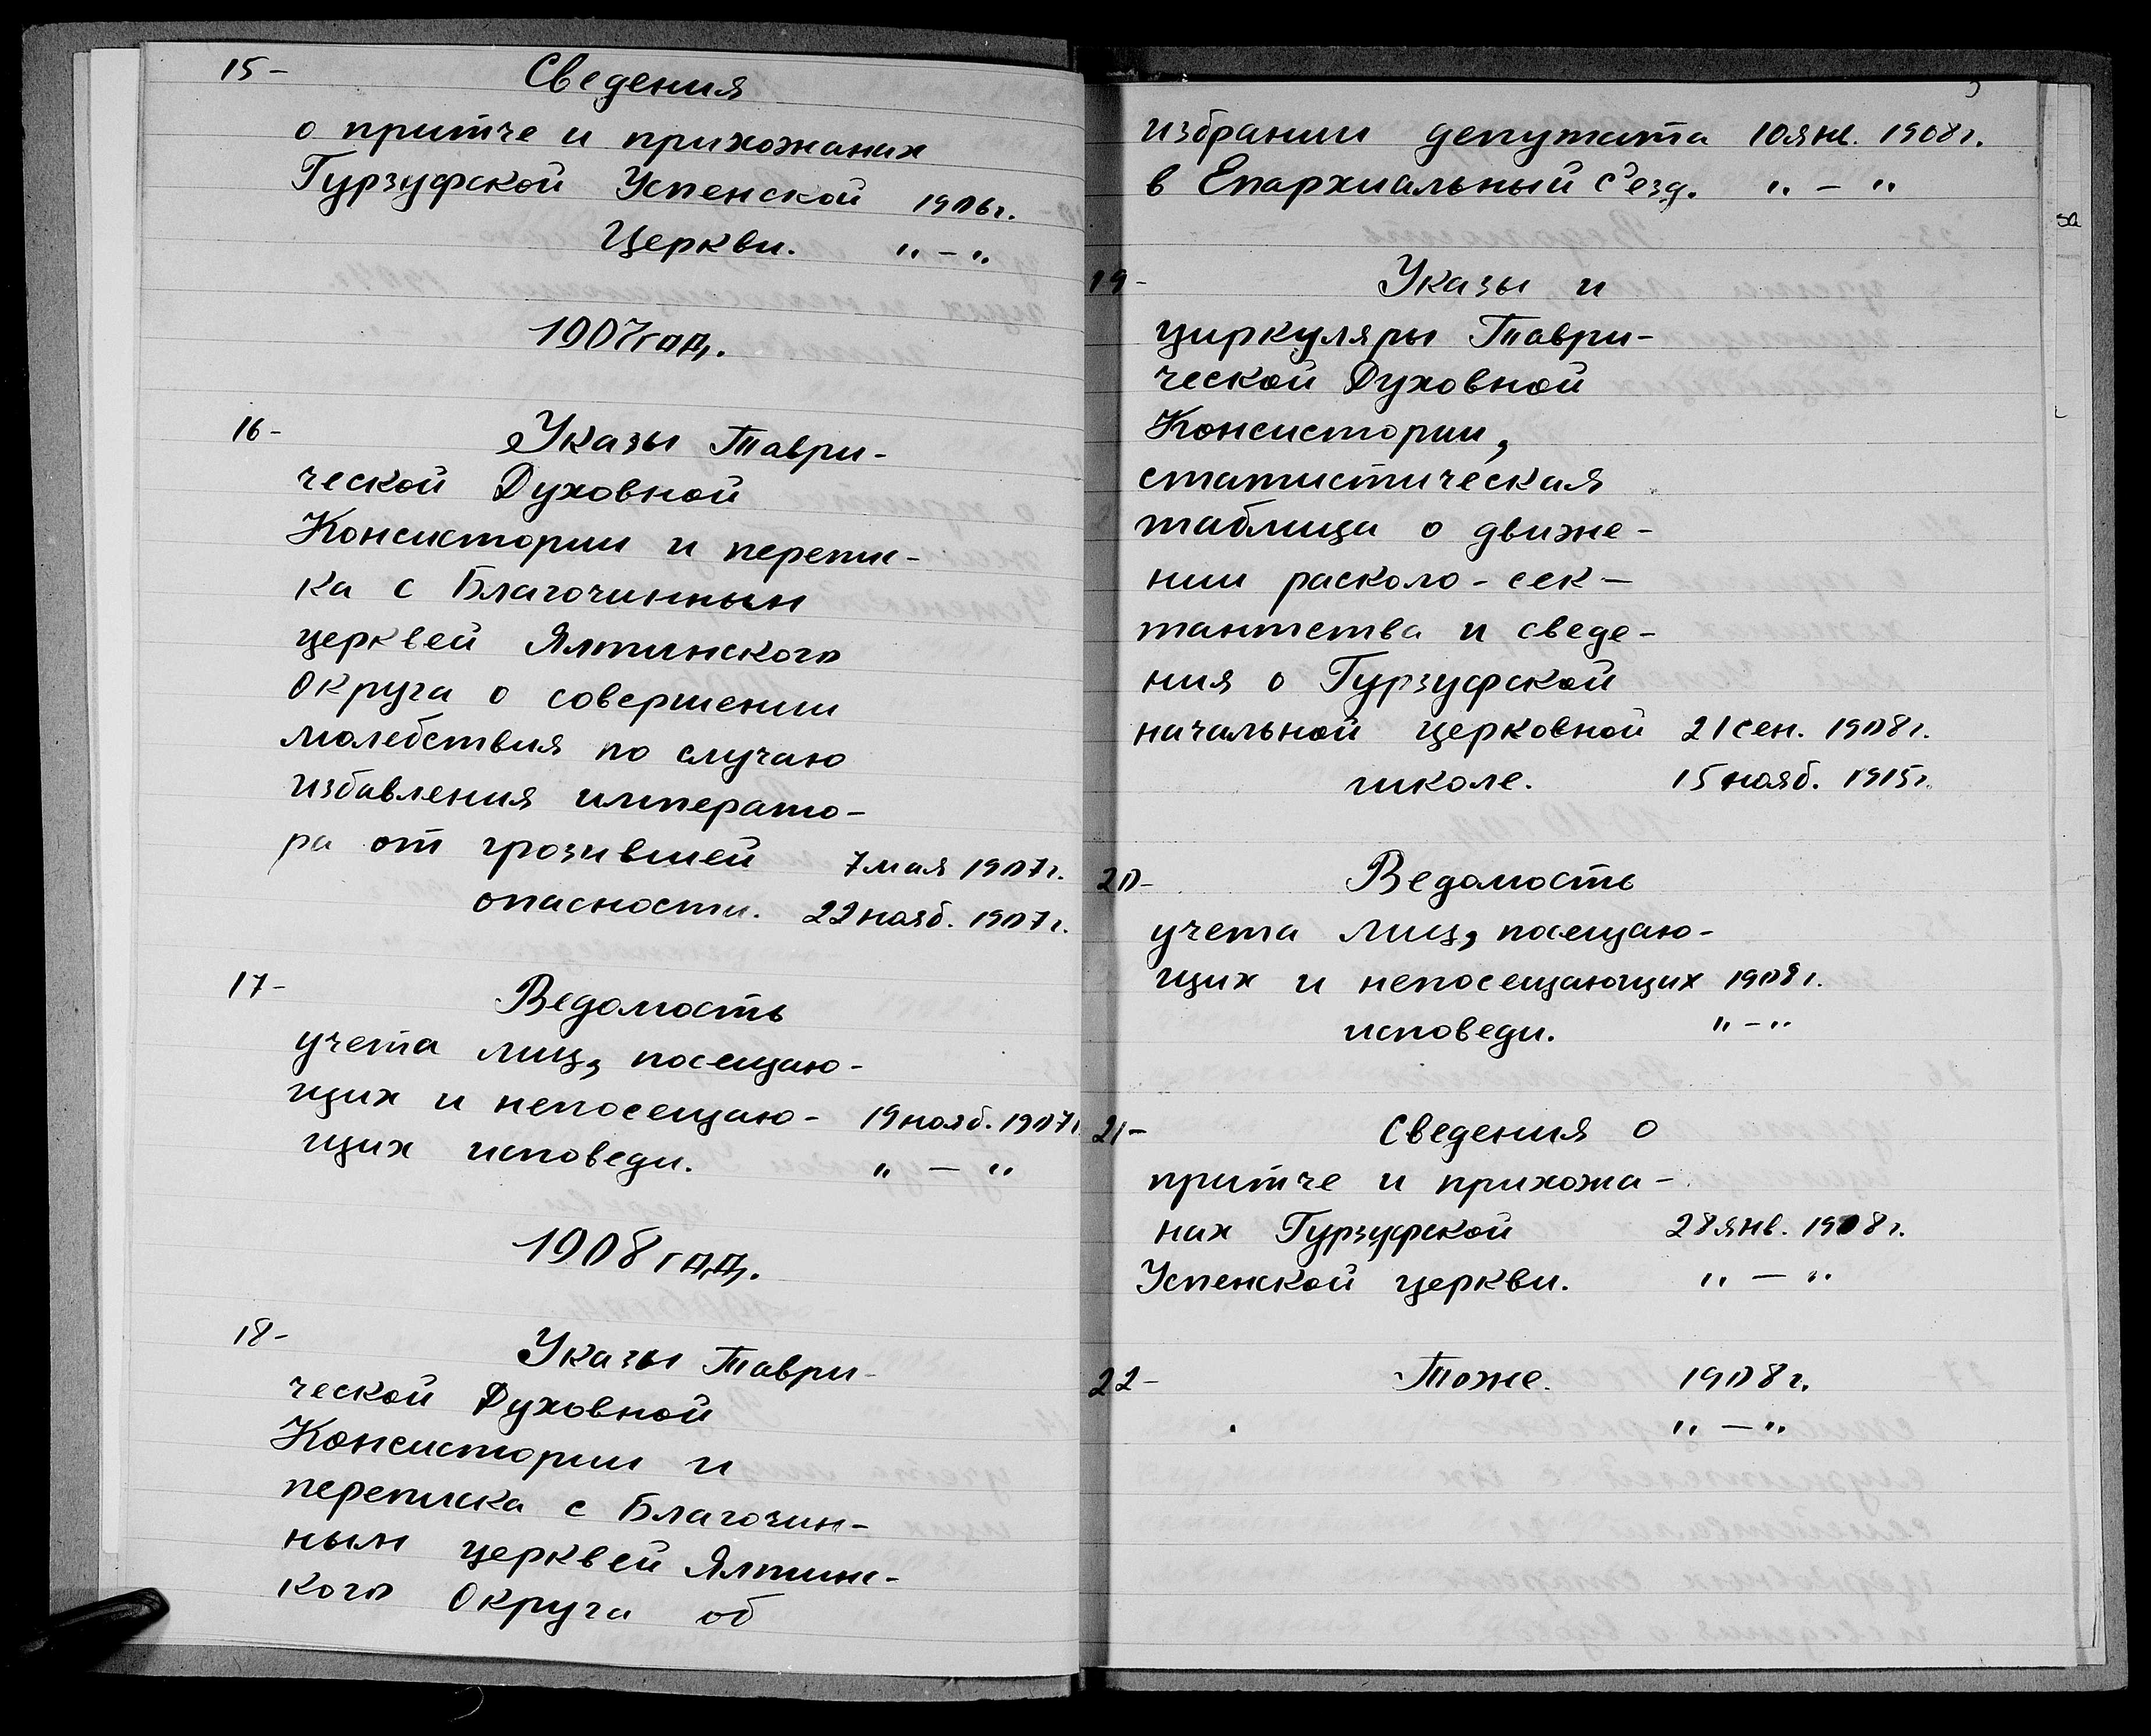 15- Сведения
о притче и прихожанах
Гурзуфской Успенской 1906г.
Церкви. "-"
1907год.
16- Указы Таври-
ческой Духовной
Консистории и перепис-
ка с Благочинным
церквей Ялтинского
Округа о совершении
молебствия по случаю
избавления императо-
ра от грозившей 7 мая 1907г.
опасности. 22 нояб. 1907г.
17- Ведомость
учета лиц, посещаю-
щих и непосещаю- 19 нояб. 1907г.
щих исповеди. " - "
1908 год.
18- Указы Таври-
ческой Духовной
Консистории и
переписка с Благочин-
ным церквей Ялтинс-
кого Округа об
избрании депутата 10 янв. 1908г.
в Епархиальный с'езд. " - "
19- Указы и
циркуляры Таври-
ческой Духовной
Консистории,
статистическая
таблица о движе-
нии расколо-сек-
тантства и сведе-
ния о Гурзуфской
начальной церковной 21 сен. 1908г.
школе. 15 нояб. 1915г.
20- Ведомость
учета лиц, посещаю-
щих и непосещающих 1908г.
исповеди. "-"
21- Сведения о
притче и прихожа-
нах Гурзуфской 28 янв. 1908г.
Успенской церкви. " - "
22- Тоже. 1908г.
" - "